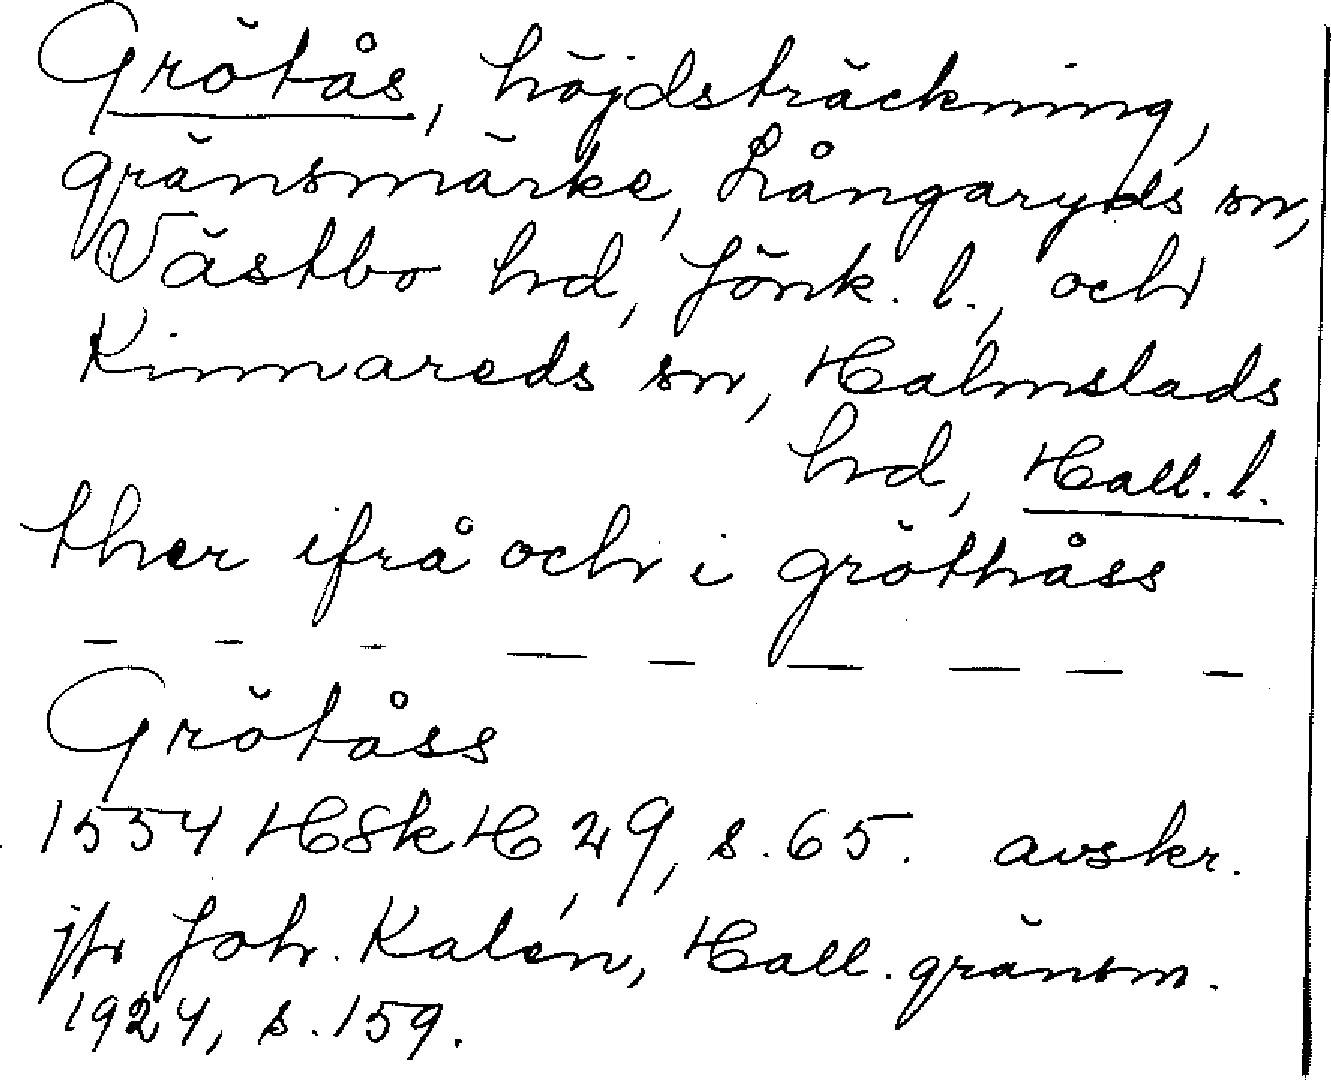 Grötås, höjdsträckning,
gränsmärke, Långaryds sn,
Västbo hd, Jönk. l., och
Kinnareds sn, Halmstads
hd, Hall. l.
ther ifrå och i gröthåss
— — — — — — — — —
Grötåss
1554 HSkH 29, s. 65. avskr.
jfr Joh. Kalén, Hall. gränsm.
1924, s. 159.